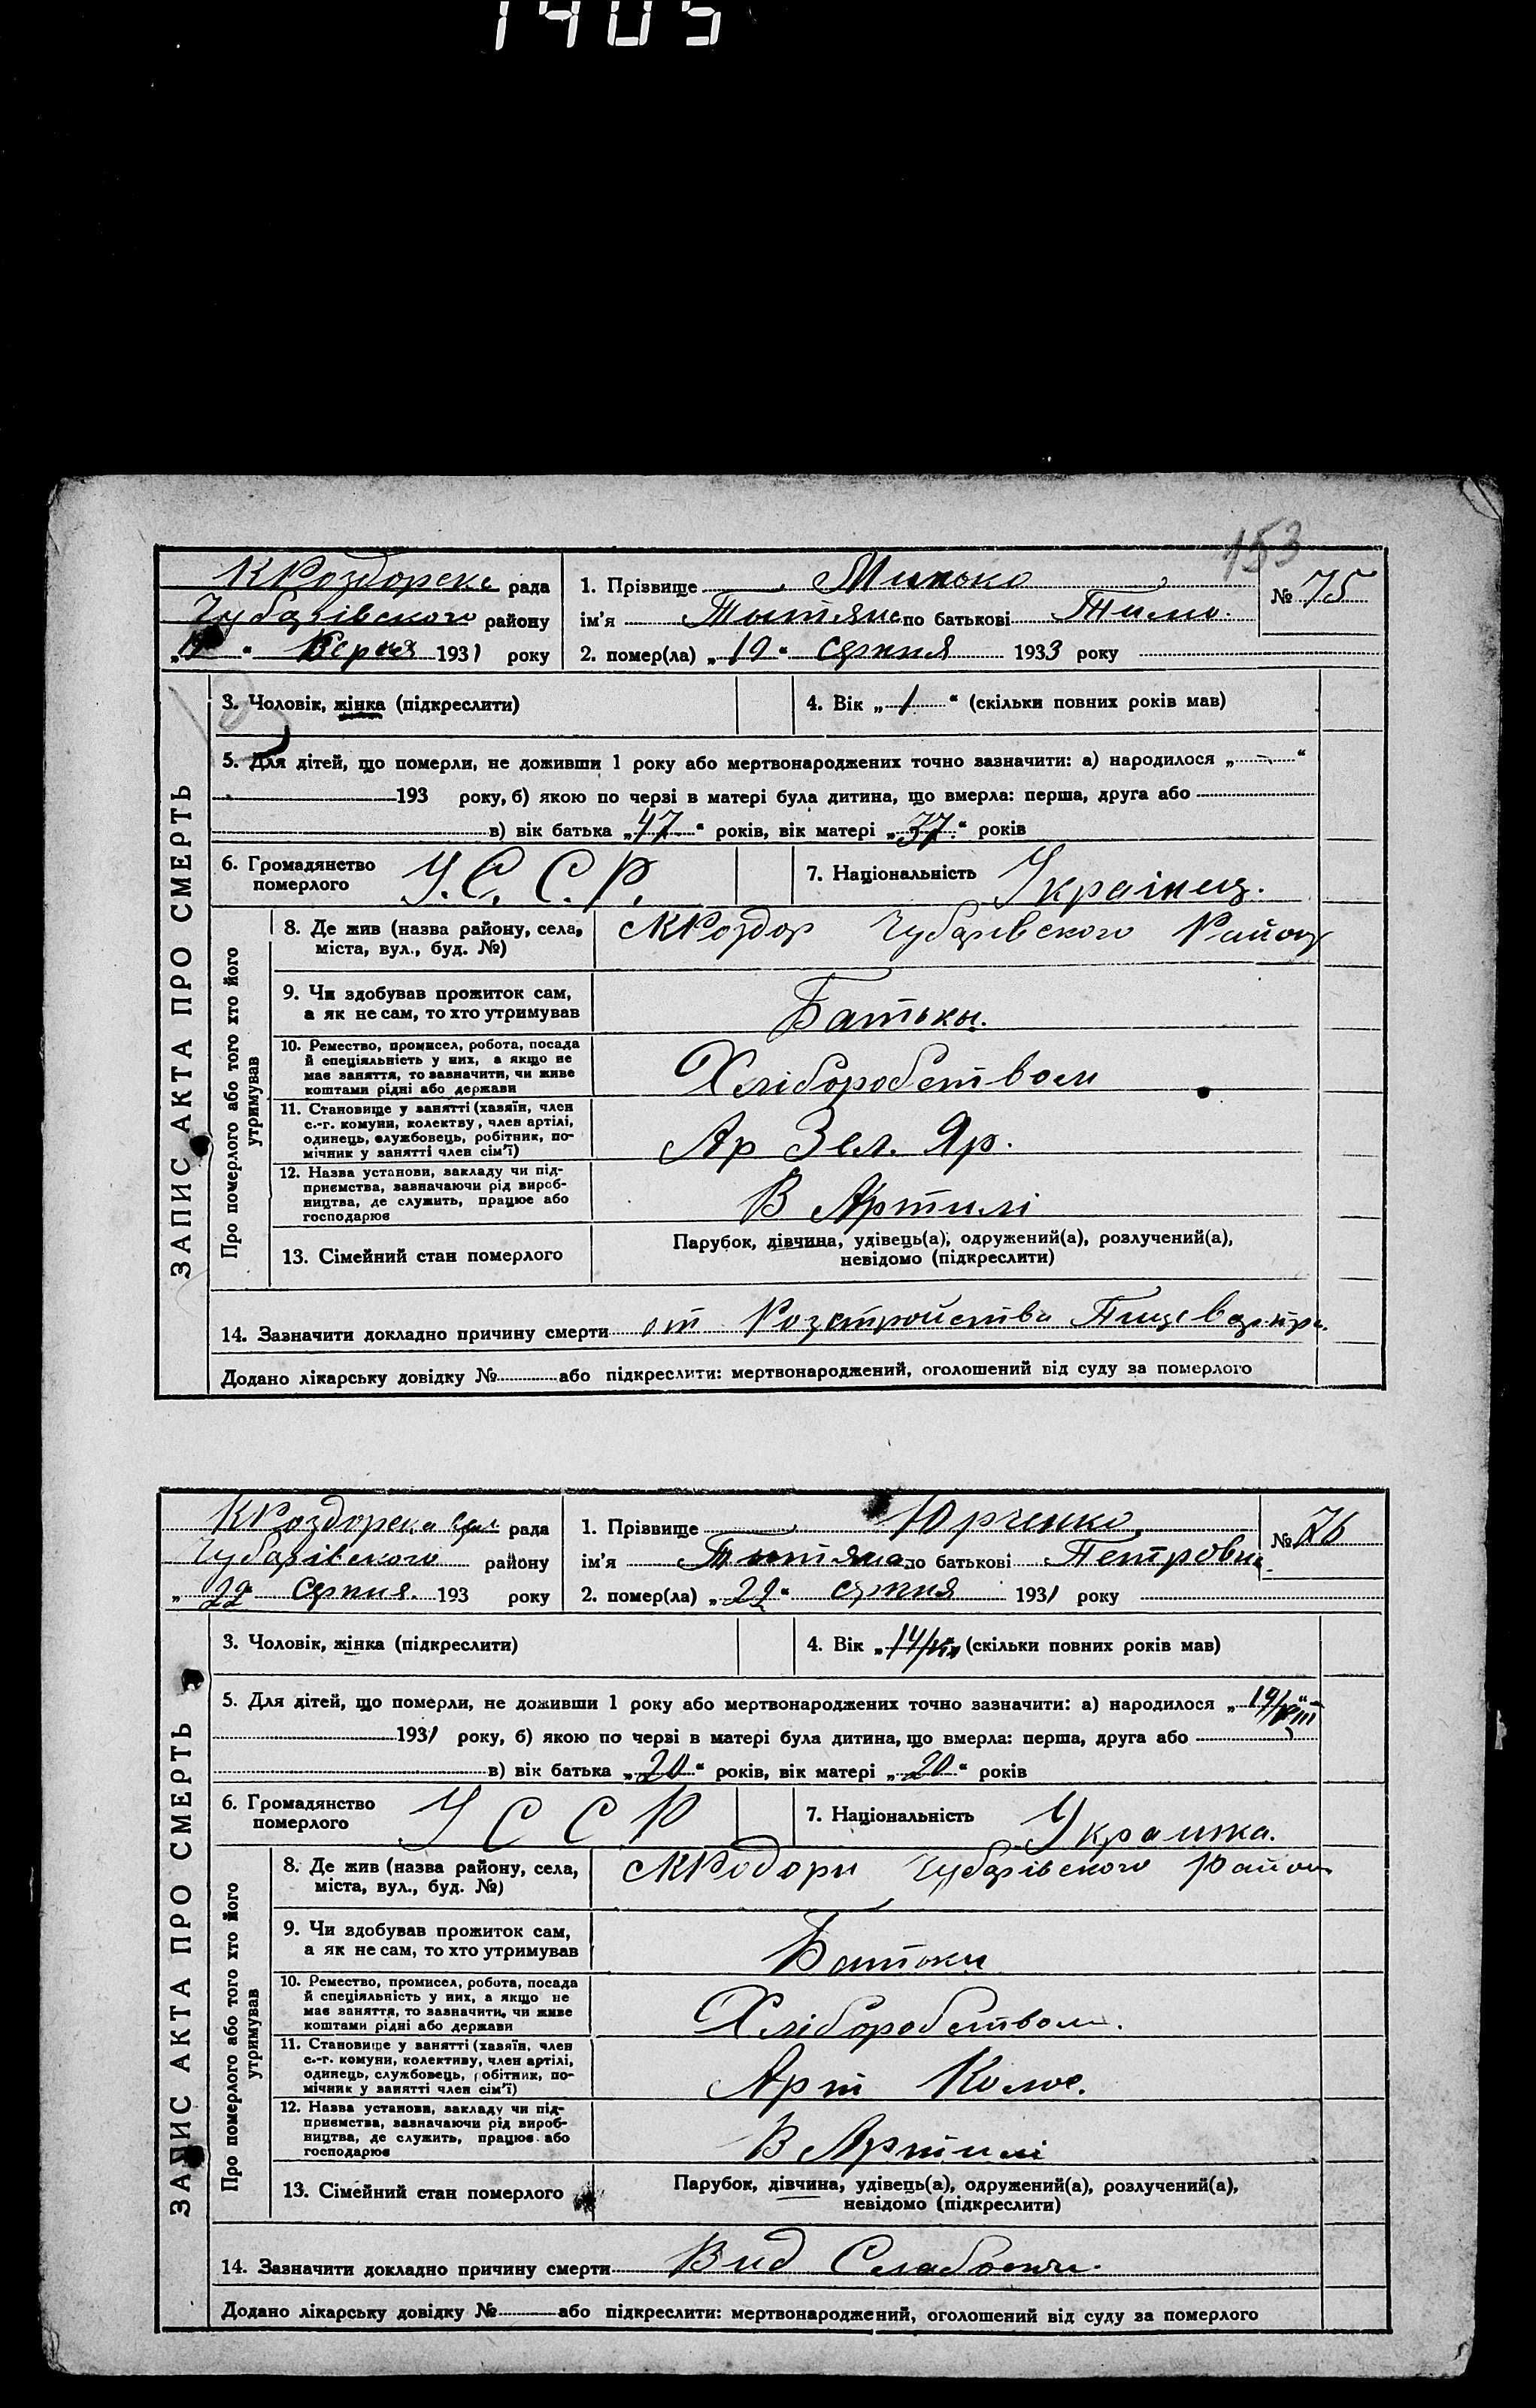 1405
153
КРоздорека рада
Чубарівского району
„19“ Серпня 1931 року
1. Прізвище Минько
№ 75
ім'я Тытяна по батькові Тимо.
2. помер(ла) „19“ серпня 1933 року
ЗАПИС АКТА ПРО СМЕРТЬ
3. Чоловік, жінка (підкреслити)
4. Вік „1“ (скільки повних років мав)
5. Для дітей, що померли, не доживши 1 року або мертвонароджених точно зазначити: а) народилося „ “
193 року, б) якою по черзі в матері була дитина, що вмерла: перша, друга або
в) вік батька „47“ років, вік матері „37“ років
6. Громадянство померлого У.С.С.Р.
7. Національність Українец.
Про померлого або того хто його утримував
8. Де жив (назва району, села, міста, вул., буд. №) МКРоздор Чубарівского Району
9. Чи здобував прожиток сам, а як не сам, то хто утримував
Батькы.
10. Ремество, промисел, робота, посада й спеціяльність у них, а якщо не має заняття, то зазначити, чи живе коштами рідні або держави
Хліборобством
11. Становище у занятті (хазяїн, член с.-г. комуни, колектву, член артілі, одинець, службовець, робітник, помічник у занятті член сім'ї)
Ар Зел. Яр.
12. Назва установи, закладу чи підприємства, зазначаючи рід виробництва, де служить, працює або господарює
В Артилі
13. Сімейний стан померлого
Парубок, дівчина, удівець(а), одружений(а), розлучений(а),
невідомо (підкреслити)
14. Зазначити докладно причину смерти от Розстройства
Додано лікарську довідку № або підкреслити: мертвонароджений, оголошений від суду за померлого
КРоздорека рада
Чубарівского району
„22“ серпня. 193 року
1. Прізвище Юрченко
№ 76
ім'я Тытяна по батькові Петровна
2. помер(ла) „22“ серпня 1931 року
ЗАПИС АКТА ПРО СМЕРТЬ
3. Чоловік, жінка (підкреслити)
4. Вік „ “ (скільки повних років мав)
5. Для дітей, що померли, не доживши 1 року або мертвонароджених точно зазначити: а) народилося „19/VIII“
1931 року, б) якою по черзі в матері була дитина, що вмерла: перша, друга або
в) вік батька „20“ років, вік матері „20“ років
6. Громадянство померлого УССР
7. Національність Украинка.
Про померлого або того хто його утримував
8. Де жив (назва району, села, міста, вул., буд. №) МКРодори Чубарівского району
9. Чи здобував прожиток сам, а як не сам, то хто утримував
Батьки
10. Ремество, промисел, робота, посада й спеціяльність у них, а якщо не має заняття, то зазначити, чи живе коштами рідні або держави
Хліборобством.
11. Становище у занятті (хазяїн, член с.-г. комуни, колективу, член артілі, одинець, службовець, робітник, помічник у занятті член сім'ї)
Арт
12. Назва установи, закладу чи підприємства, зазначаючи рід виробництва, де служить, працює або господарює
В Артилі
13. Сімейний стан померлого
Парубок, дівчина, удівець(а), одружений(а), розлучений(а),
невідомо (підкреслити)
14. Зазначити докладно причину смерти Вид Слабости.
Додано лікарську довідку № або підкреслити: мертвонароджений, оголошений від суду за померлого